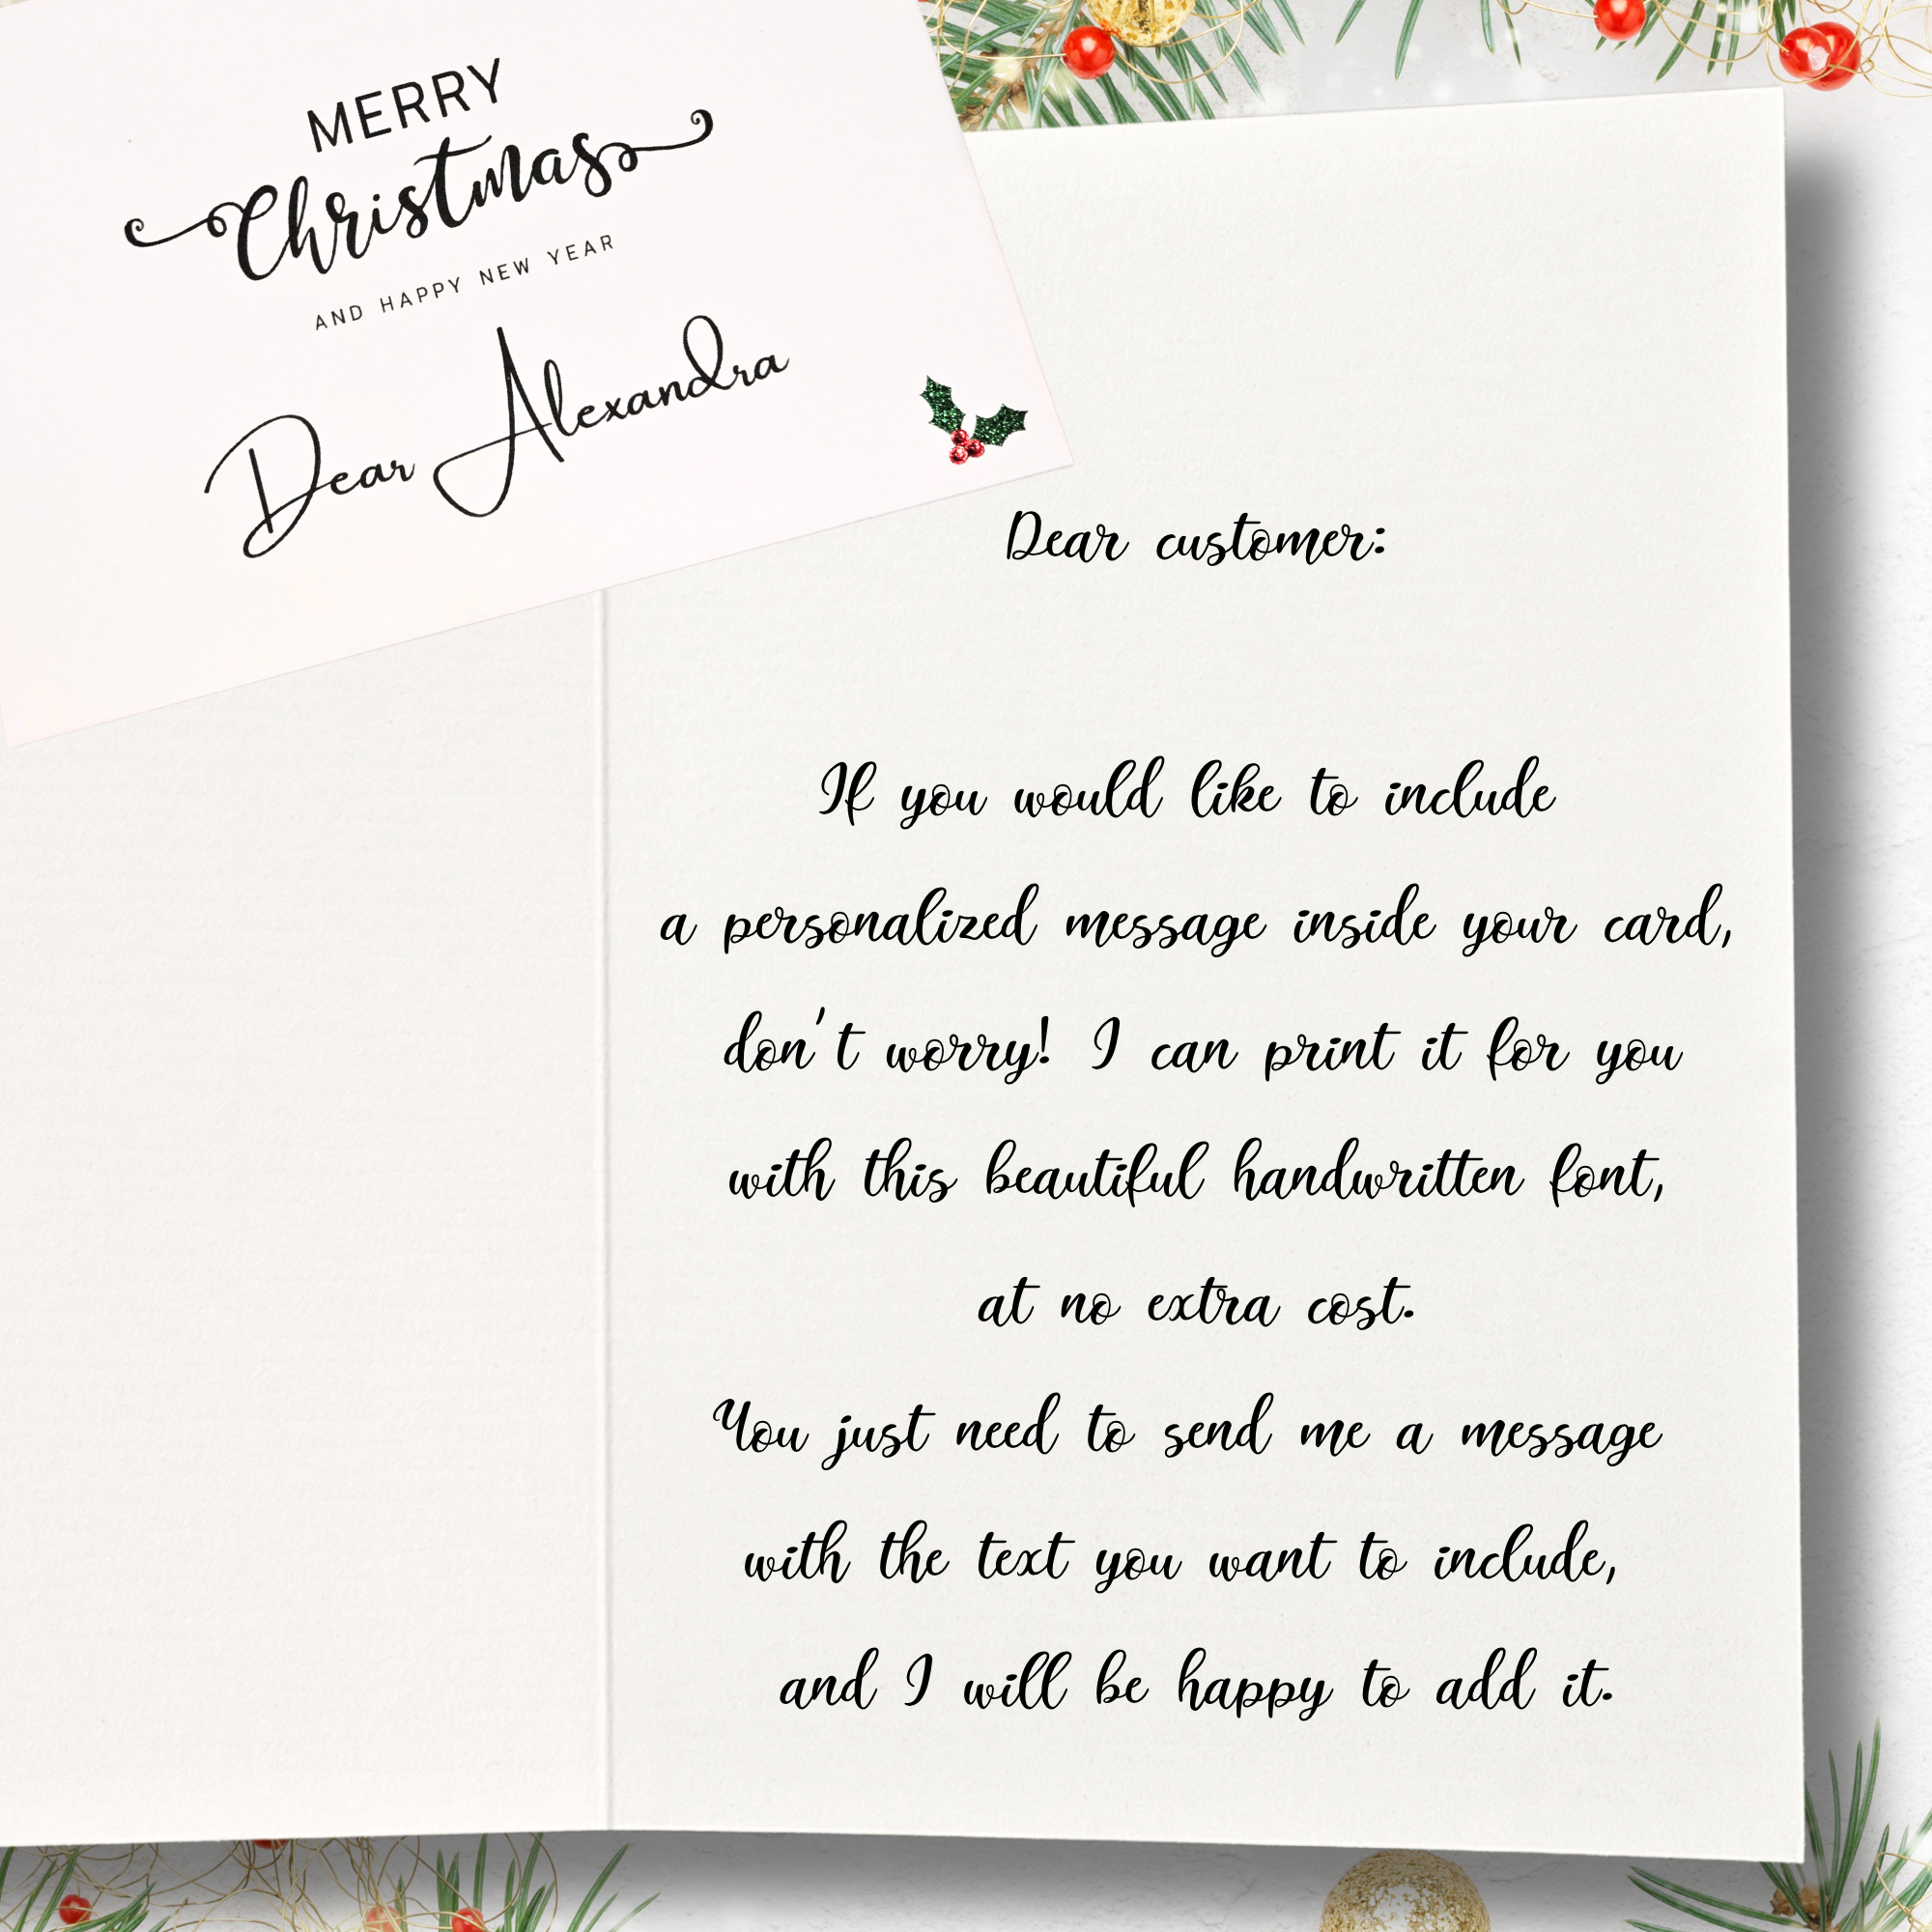 MERRY
Christmas
AND HAPPY NEW YEAR
Dear Alexandra
Dear customer:
If you would like to include
a personalized message inside your card,
don't worry! I can print it for you
with this beautiful handwritten font,
at no extra cost.
You just need to send me a message
with the text you want to include,
and I will be happy to add it.